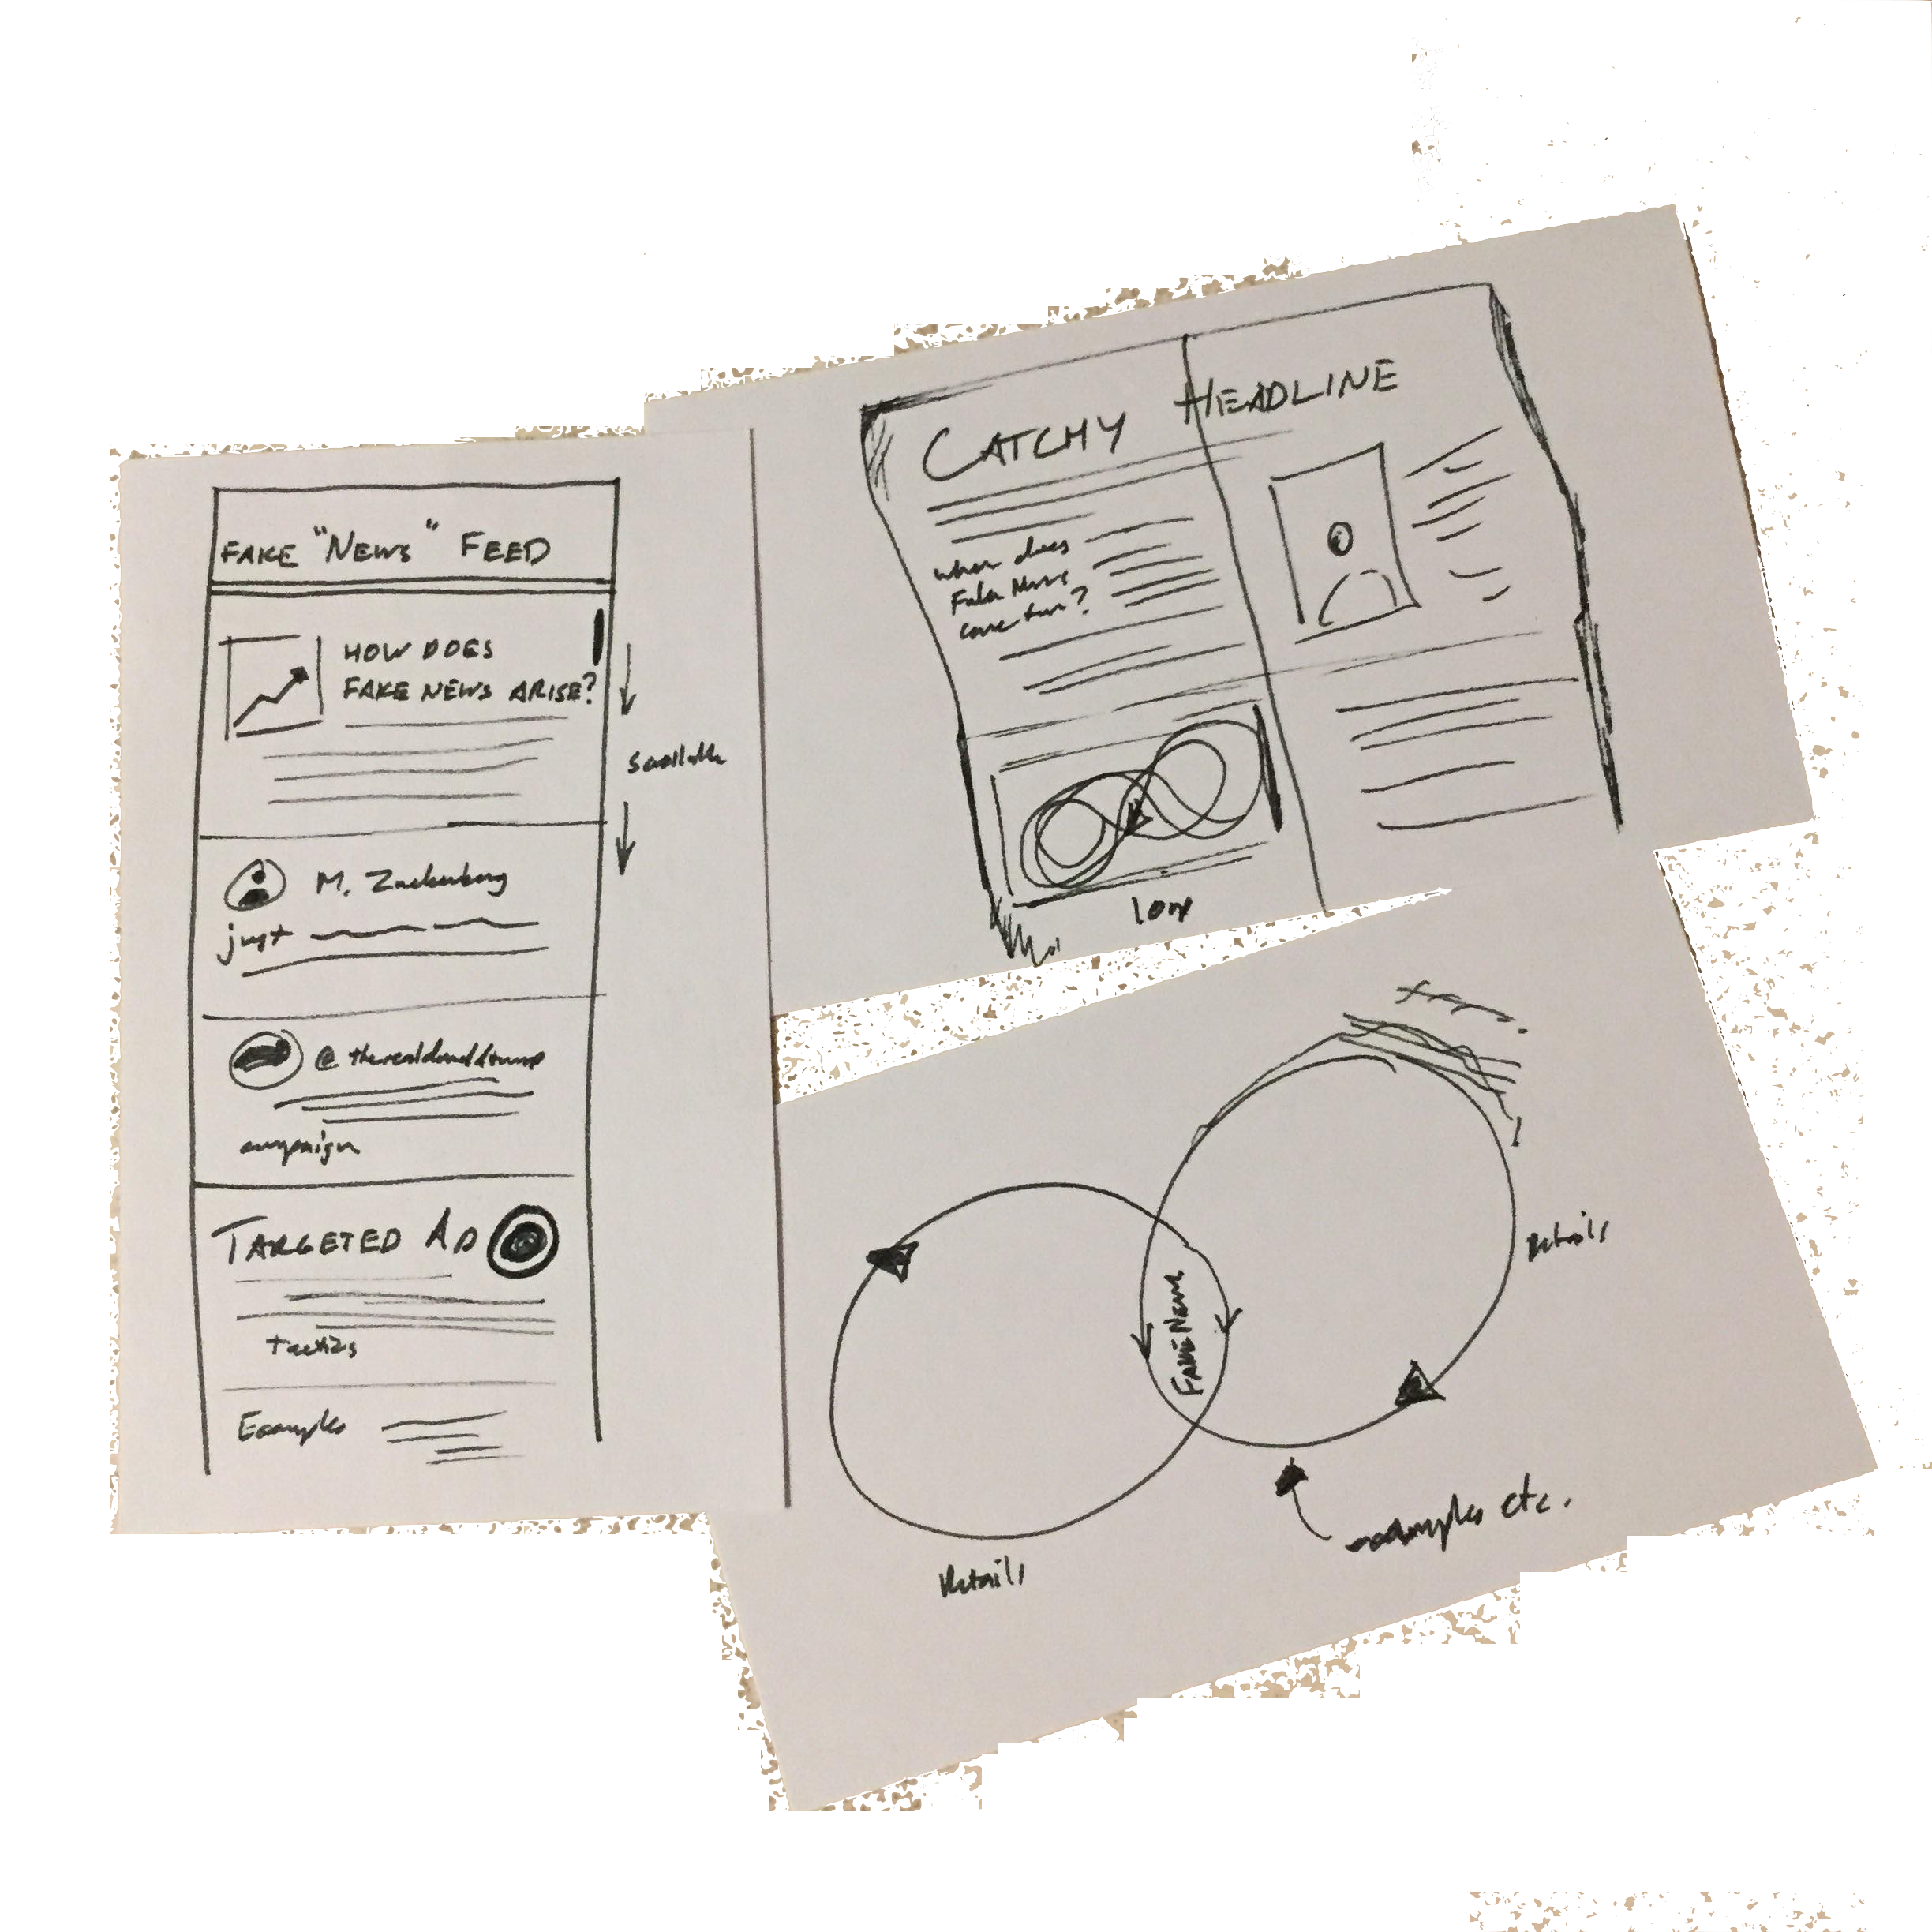 FAKE "NEWS" FEED
HOW DOES
FAKE NEWS ARISE?
Scrollable
M. Zuckerberg
just
@therealdonaldtrump
campaign
TARGETED AD
tactics
Examples
CATCHY HEADLINE
where does
Fake News
come from?
loop
FAKE NEWS
Details
Details
examples etc.